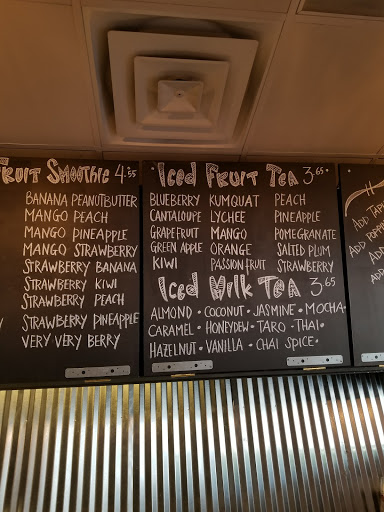 Fruit Smoothie 4.55
BANANA PEANUTBUTTER
MANGO PEACH
MANGO PINEAPPLE
MANGO STRAWBERRY
STRAWBERRY BANANA
STRAWBERRY KIWI
STRAWBERRY PEACH
STRAWBERRY PINEAPPLE
VERY VERY BERRY
Iced Fruit Tea 3.65
BLUEBERRY KUMQUAT PEACH
CANTALOUPE LYCHEE PINEAPPLE
GRAPEFRUIT MANGO POMEGRANATE
GREEN APPLE ORANGE SALTED PLUM
KIWI PASSIONFRUIT STRAWBERRY
Iced Milk Tea 3.65
ALMOND • COCONUT • JASMINE • MOCHA •
CARAMEL • HONEYDEW • TARO • THAI •
HAZELNUT • VANILLA • CHAI SPICE •
ADD
ADD
ADD
ADD